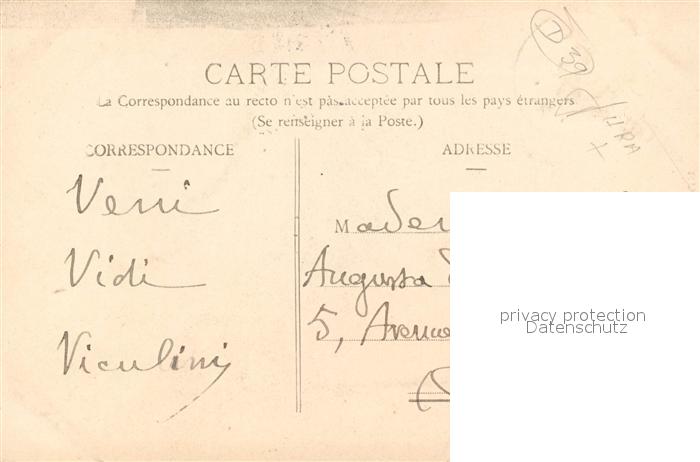 CARTE POSTALE
La Correspondance au recto n'est pas acceptée par tous les pays étrangers
(Se renseigner à la Poste.)
CORRESPONDANCE
Veni
Vidi
ADRESSE
Augusta
5, Avenue
D 39
privacy protection
Datenschutz